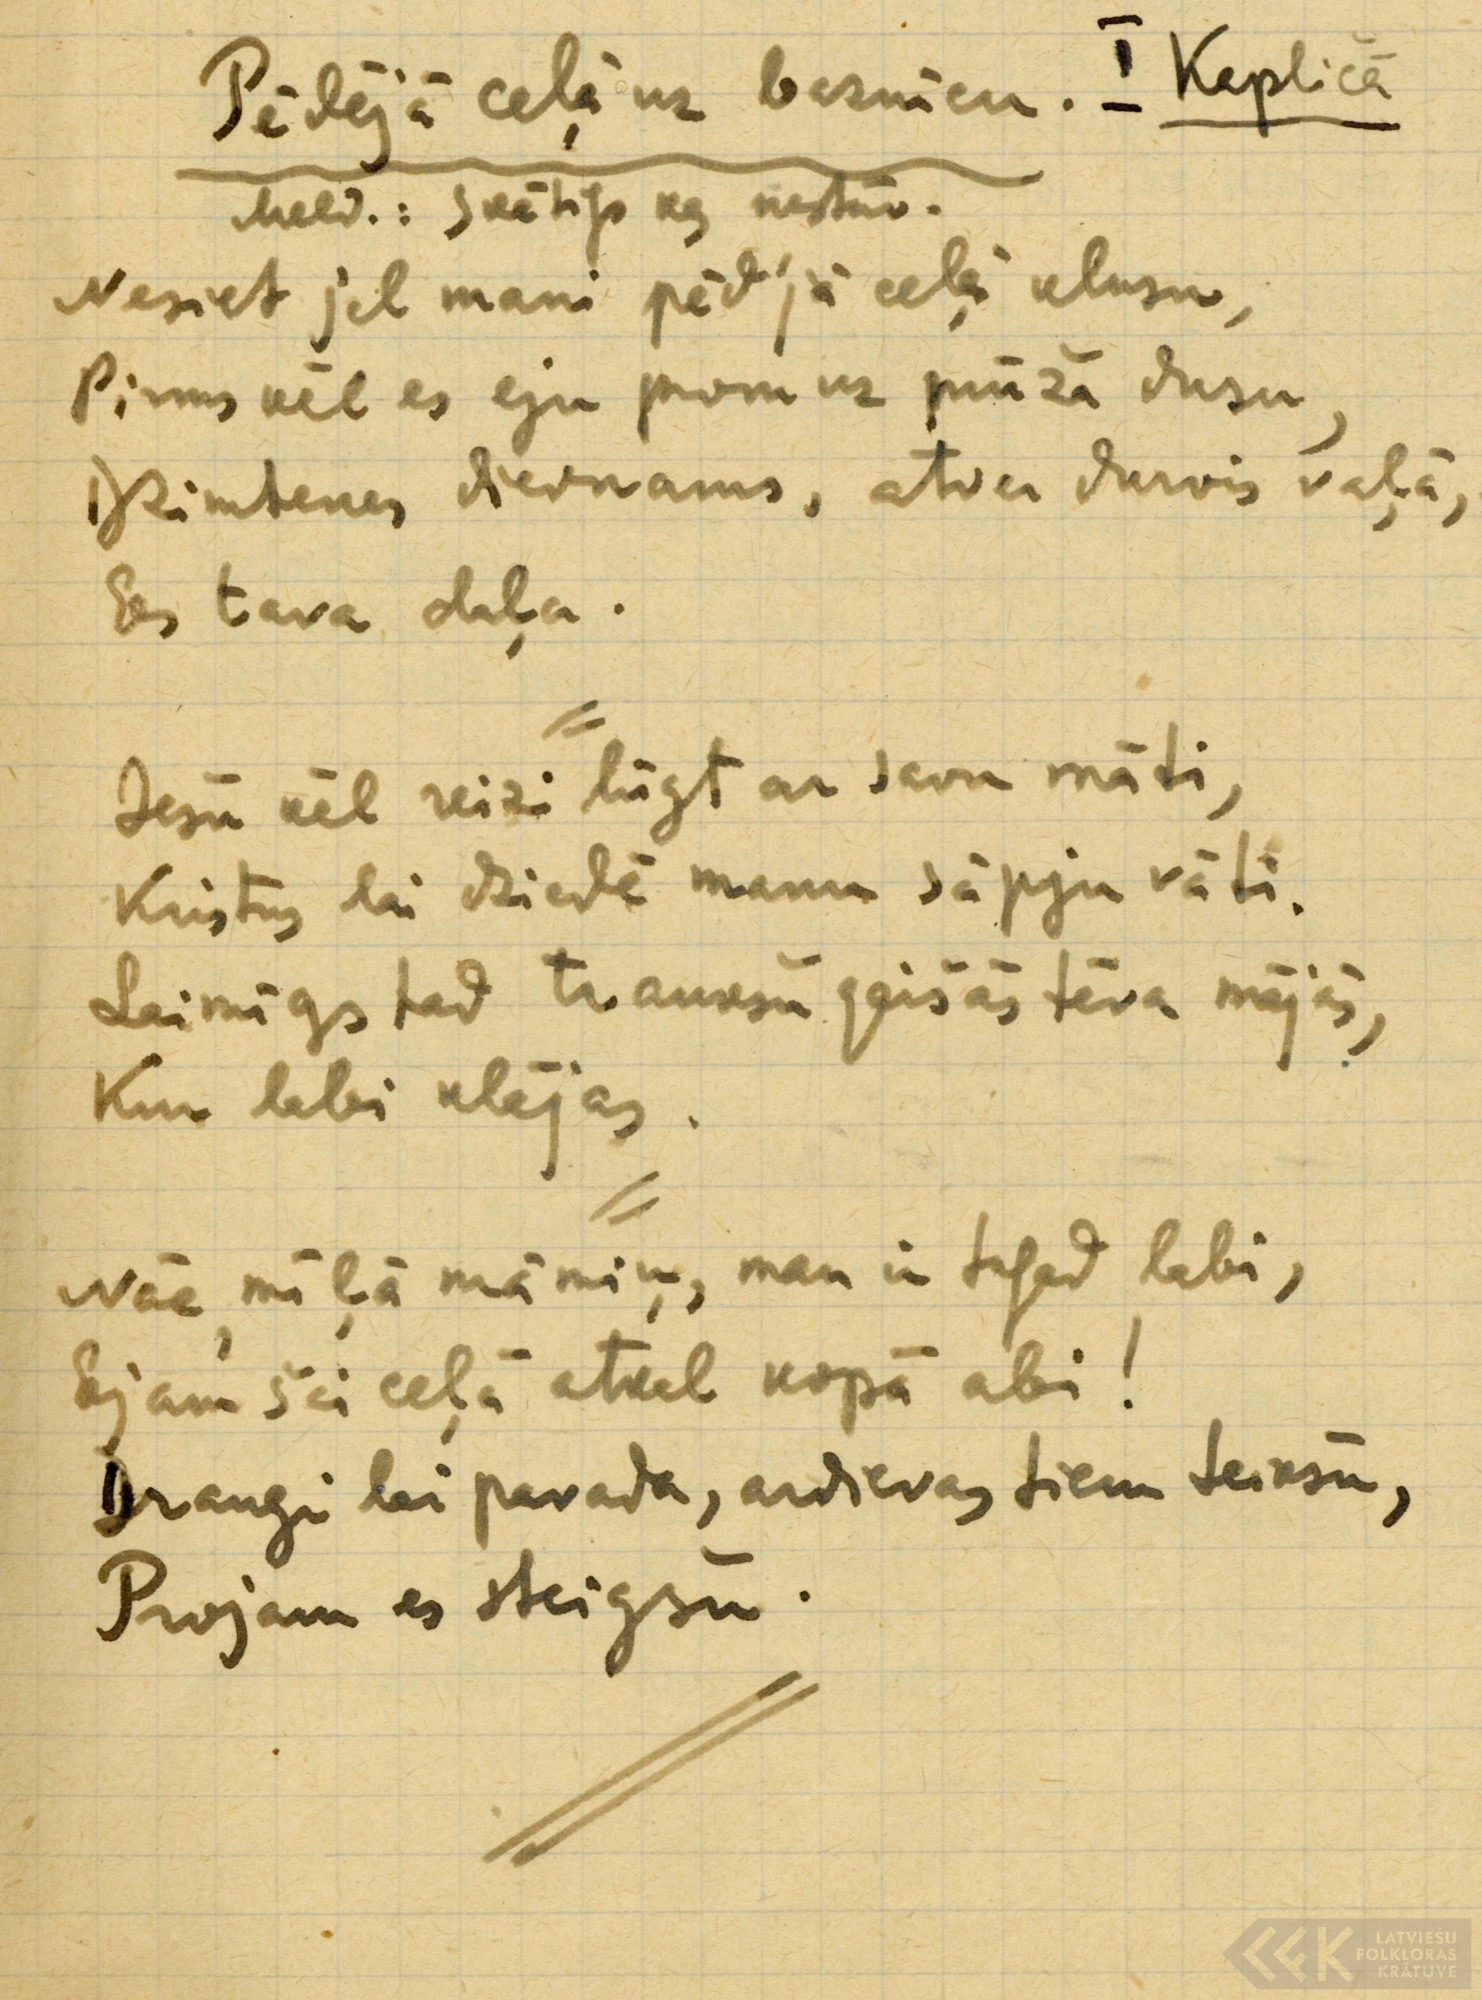 Pēdējā ceļā uz baznīcu. I Kapličā
Meld.: Skatijs kas nestūr.
Nesiet jel mani pēd'jā ceļā klusu,
Pirms vēl es eju prom uz mūžā dusu,
Dzimtenes dievnams, atver durvis vaļā,
Es tava daļa.
Jesū vēl reizi lūgt ar savu māti,
Kristus lai dziedē manu sāpju vāti.
Laimīgs tad traukšū gaišās tēva mājās,
Kur labi klājas.
Nāc, mīļā māmiņ, man ir tagad labi,
Ejam šai ceļā atkal kopā abi!
Draugi lai pavada, ardievas tiem teikšū,
Projam es steigšū.
LATVIEŠU
FOLKLORAS
KRĀTUVE